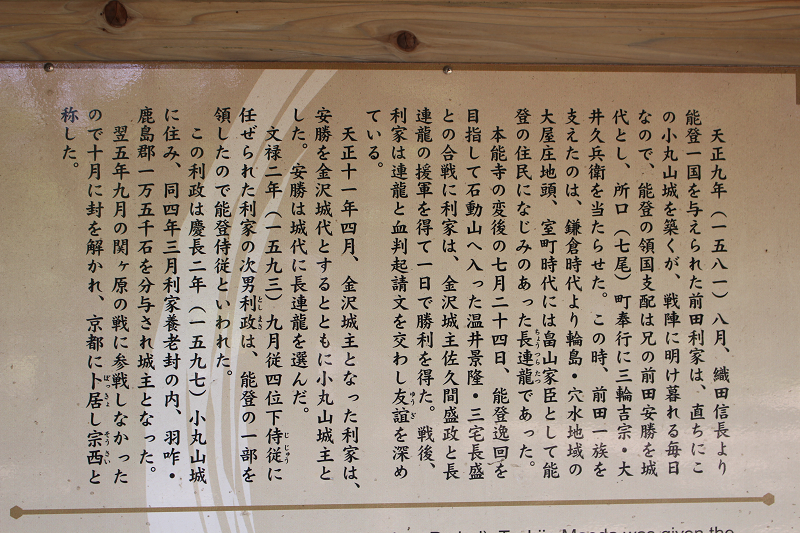 天正九年（一五八一）八月、織田信長より
能登一国を与えられた前田利家は、直ちにこ
の小丸山城を築くが、戦陣に明け暮れる毎日
なので、能登の領国支配は兄の前田安勝を城
代とし、所口（七尾）町奉行に三輪吉宗・大
井久兵衛を当たらせた。この時、前田一族を
支えたのは、鎌倉時代より輪島・穴水地域の
大屋庄地頭、室町時代には畠山家臣として能
登の住民になじみのあった長連龍であった。
ちょうつらたつ
本能寺の変後の七月二十四日、能登逸回を
目指して石動山へ入った温井景隆・三宅長盛
との合戦に利家は、金沢城主佐久間盛政と長
連龍の援軍を得て一日で勝利を得た。戦後、
利家は連龍と血判起請文を交わし友誼を深め
ゆうぎ
ている。
天正十一年四月、金沢城主となった利家は、
安勝を金沢城代とするとともに小丸山城主と
した。安勝は城代に長連龍を選んだ。
文禄二年（一五九三）九月従四位下侍従に
じじゅう
任ぜられた利家の次男利政は、能登の一部を
としまさ
領したので能登侍従といわれた。
この利政は慶長二年（一五九七）小丸山城
に住み、同四年三月利家養老封の内、羽咋・
鹿島郡一万五千石を分与され城主となった。
翌五年九月の関ヶ原の戦に参戦しなかった
ので十月に封を解かれ、京都に卜居し宗西と
ぼっきょ
そうさい
称した。